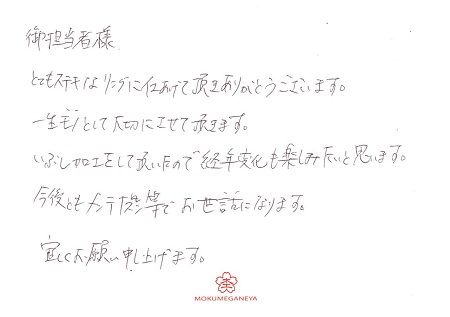 御担当者様
とてもステキなリングに仕あげて頂きありがとうございます。
一生モノとして大切にさせて頂きます。
いぶし加工をして頂いたので経年変化も楽しみたいと思います。
今後ともメンテ等でお世話になります。
宜しくお願い申し上げます。
MOKUMEGANEYA